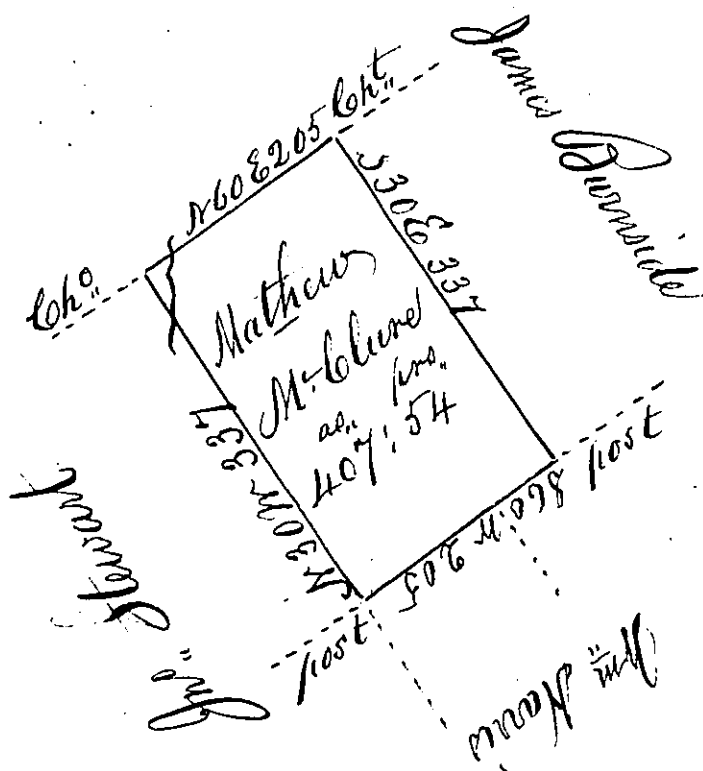 James Burnside
Cht.,
N60E205
Cho.,
S30E 337
Mathew
McClure
as., prs.,
407: 54
N30W 337
S60.W 205
post
post
Jno., Stewart
Wm., Harris